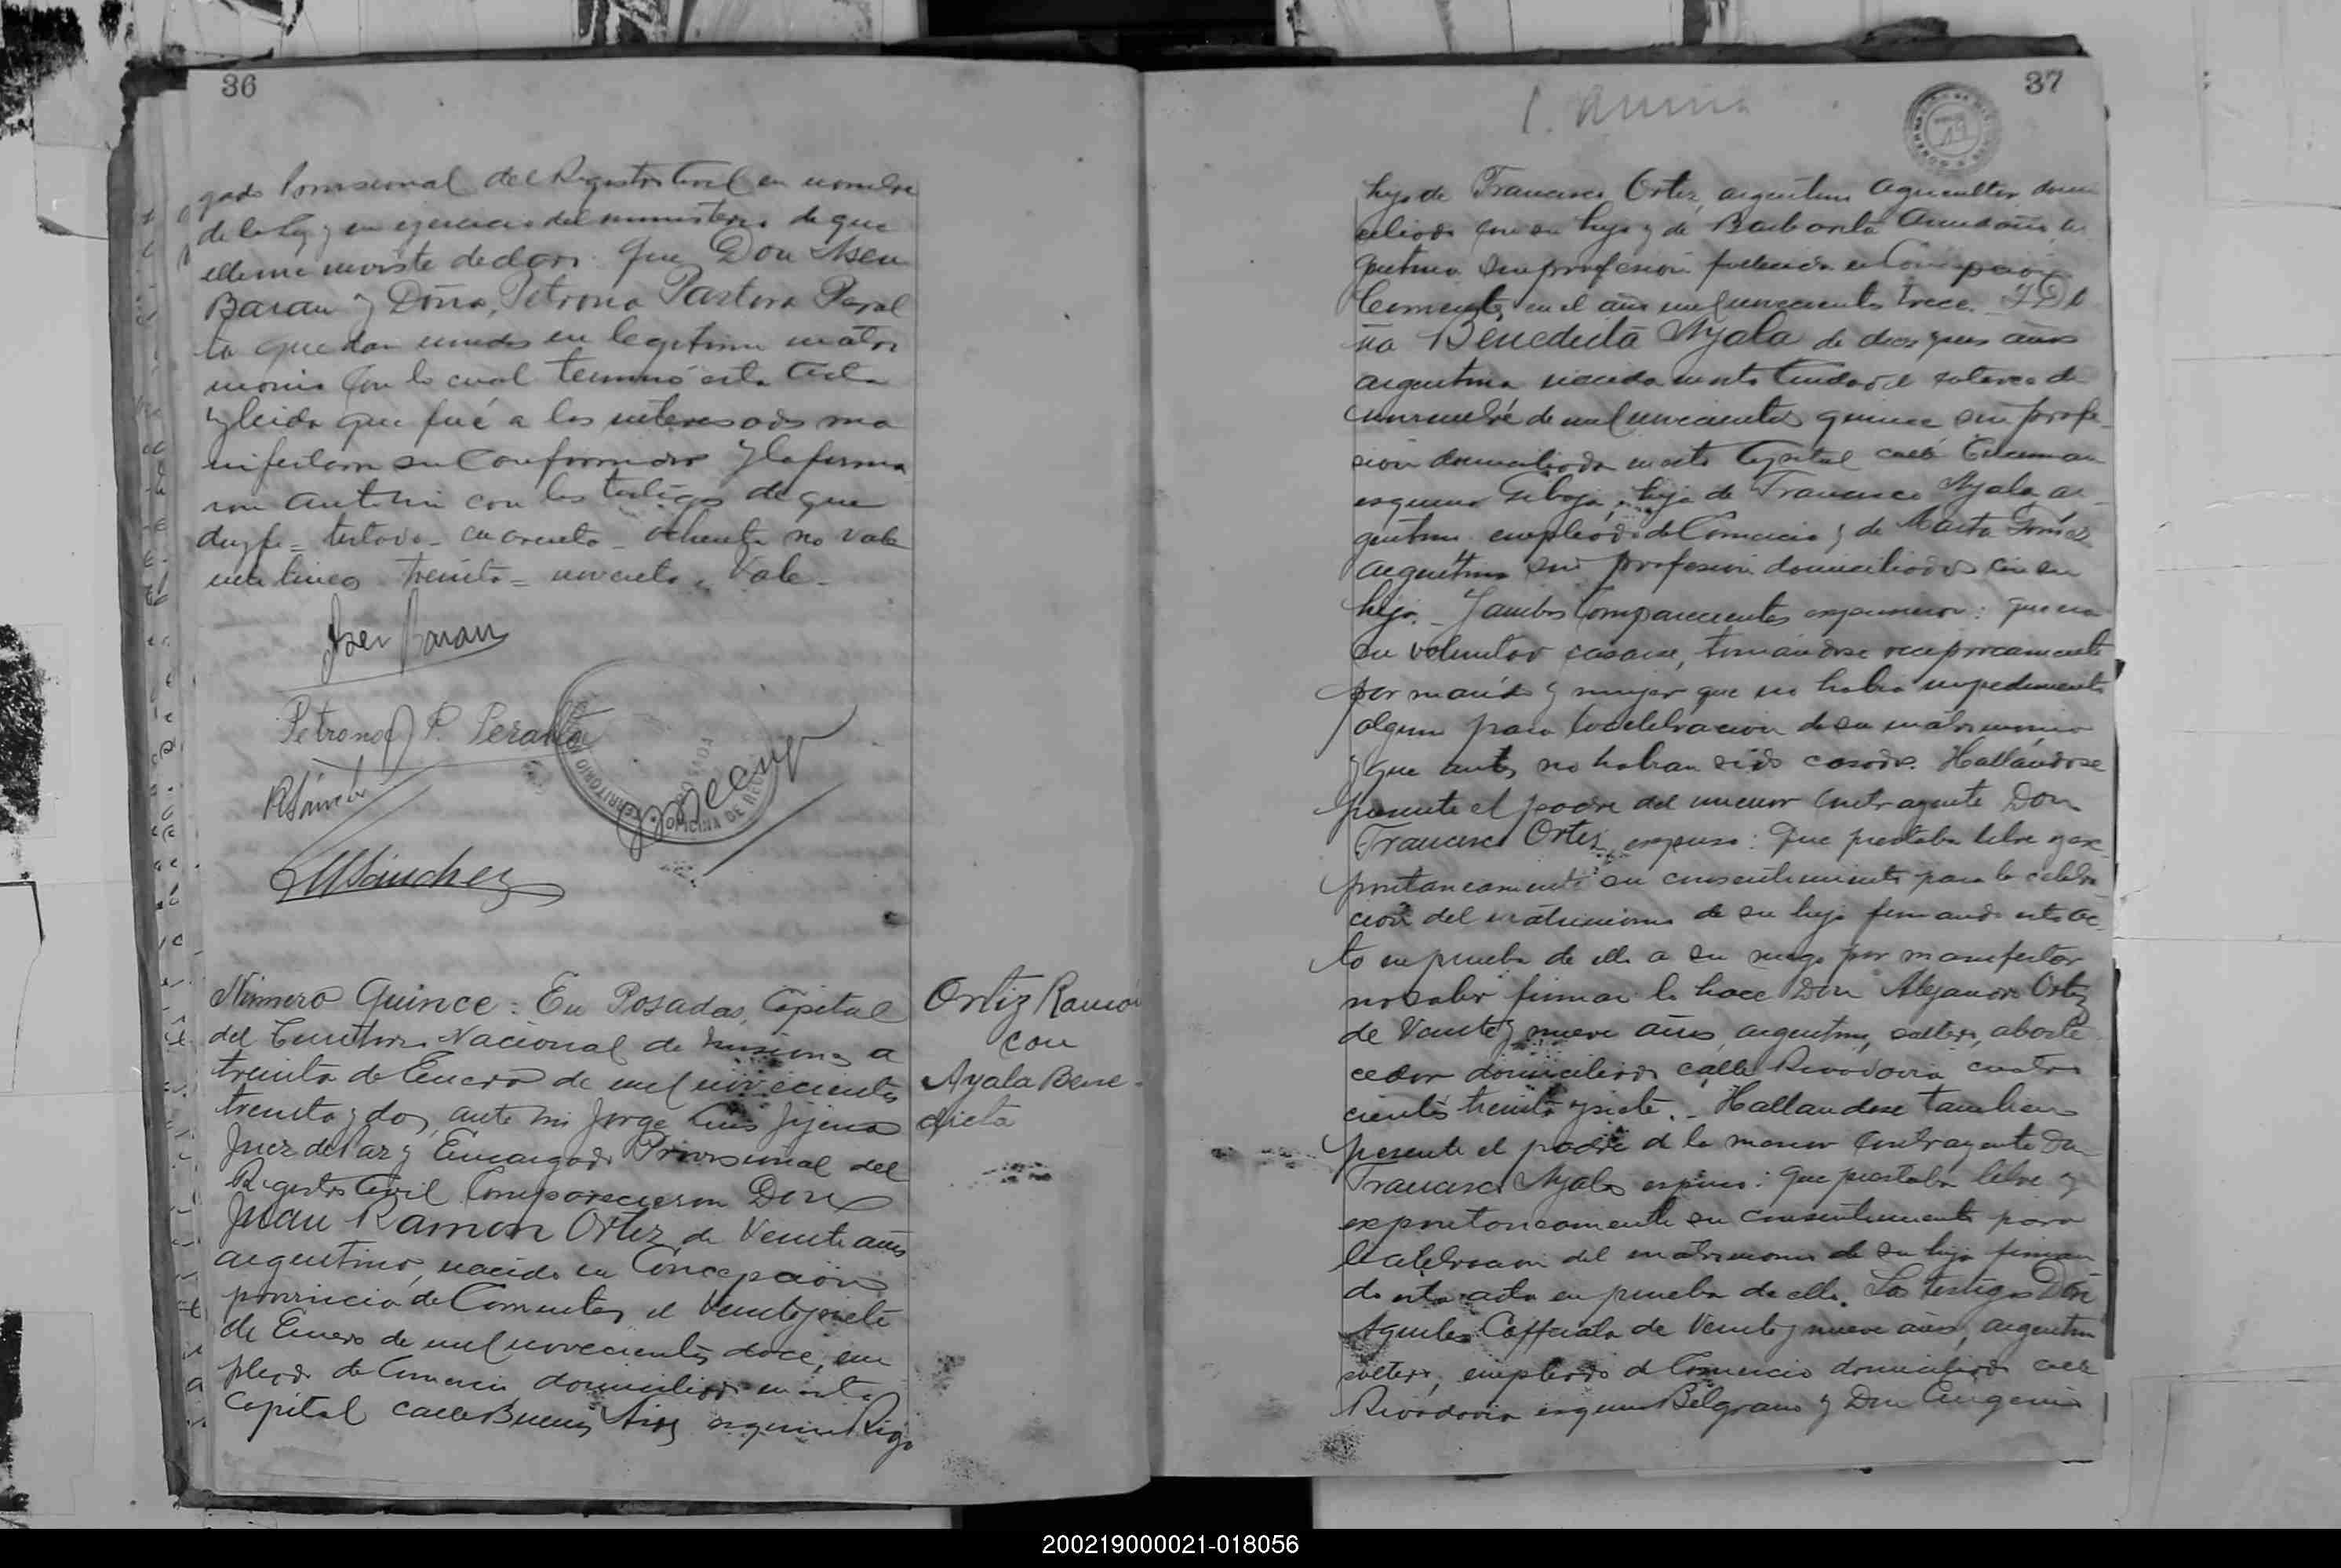 36
gado Provisional del Registro Civil en nombre
de la ley y en ejercicio del ministerio de que
ella me inviste declaro: que Don Aser
Baran y Doña Petrona Pastora Peral
ta quedan unidos en legitimo matri
monio Con lo cual terminó esta acta
y leida que fué a los interesados ma
nifestaron su Conformidad y la firma
ron ante mi con los testigos de que
doy fe = testado - cuarenta - ochenta no vale
entre lineas - treinta = noventa - Vale -
Aser Baran
Petrona P. Peralta
TERRITORIO
POSADAS
OFICINA DE REG
MSánchez
Número Quince: En Posadas, Capital
del Territorio Nacional de Misiones a
treinta de Enero de mil novecientos
treinta y dos, ante mi Jorge Luis
Juez de Paz y Encargado Provisional del
Registro Civil Comparecieron Don
Juan Ramon Ortiz de Veinte años
argentino, nacido en Concepcion
provincia de Corrientes el Veintisiete
de Enero de mil novecientos doce, em
pleado de Comercio domiciliado en esta
Capital calle Buenos Aires esquina Rigo
Ortiz Ramón
con
Ayala Bene-
dicta
37
hijo de Francisco Ortiz, argentino agricultor domi
ciliado con su hijo y de ar
gentina sin profesion fallecida en Concepcion
Corrientes, en el año mil novecientos trece. Y Do
ña Benedicta Ayala de dies y seis años
argentina nacida en este Ciudad el catorce de
de mil novecientos quince sin profe-
sion domiciliada en esta Capital calle Tucuman
esquina hija de Francisco Ayala, ar-
gentino empleado de Comercio y de Marta Gómez
argentina sin profesion domiciliados con su
hija. - Y ambos Comparecientes expusieron: que era
su voluntad casarse, tomándose reciprocamente
por marido y mujer que no habia impedimento
alguno para la celebracion de su matrimonio
y que antes no habian sido casados. Hallándose
presente el padre del menor Contrayente Don
Francisco Ortiz, expuso: Que prestaba libre y ex-
pontaneamente su consentimiento para la celebra
cion del matrimonio de su hijo firmando esta ac
ta en prueba de ello a su ruego por manifestar
no saber firmar lo hace Don Alejandro Ortiz
de Veinte y nueve años, argentino, soltero, abaste
cedor domiciliado calle Rivadavia cuatro
cientos treinta y siete. - Hallandose tambien
presente el padre de la menor Contrayente Don
Francisco Ayala expuso: Que prestaba libre y
expontaneamente su consentimiento para
la celebracion del matrimonio de su hija firman
do esta acta en prueba de ello. Los testigos Don
Aquiles Coffiala de Veinte y nueve años, argentino
soltero, empleado de Comercio domiciliado calle
Rivadavia esquina Belgrano y Don Eugenio
200219000021-018056